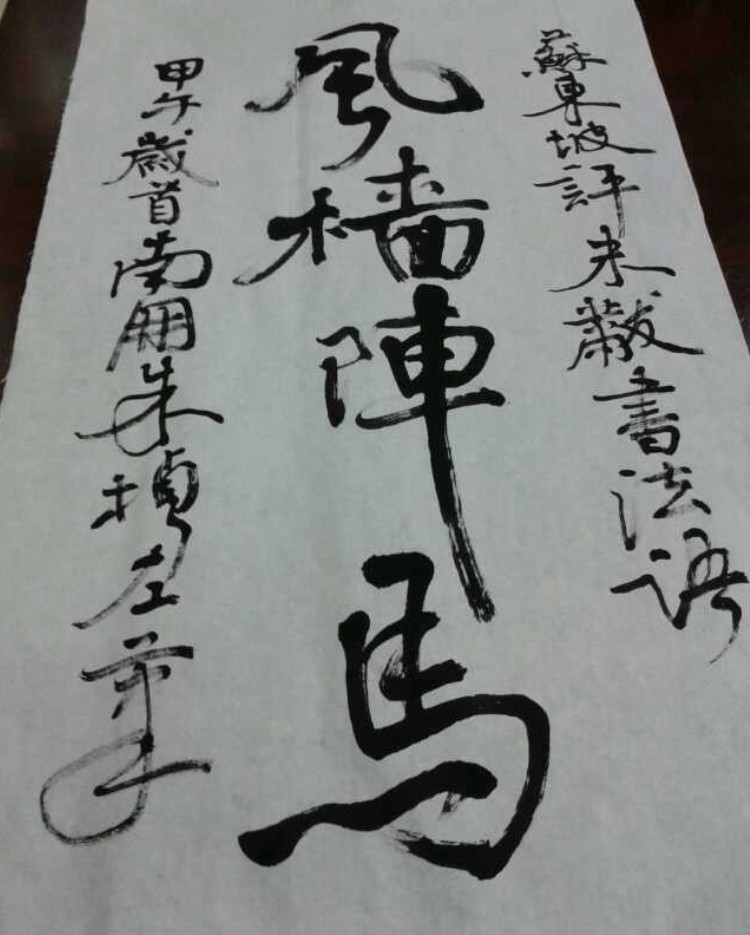 蘇東坡評米黻書法語
風樯陣馬
甲午歲首南朋朱楨左筆